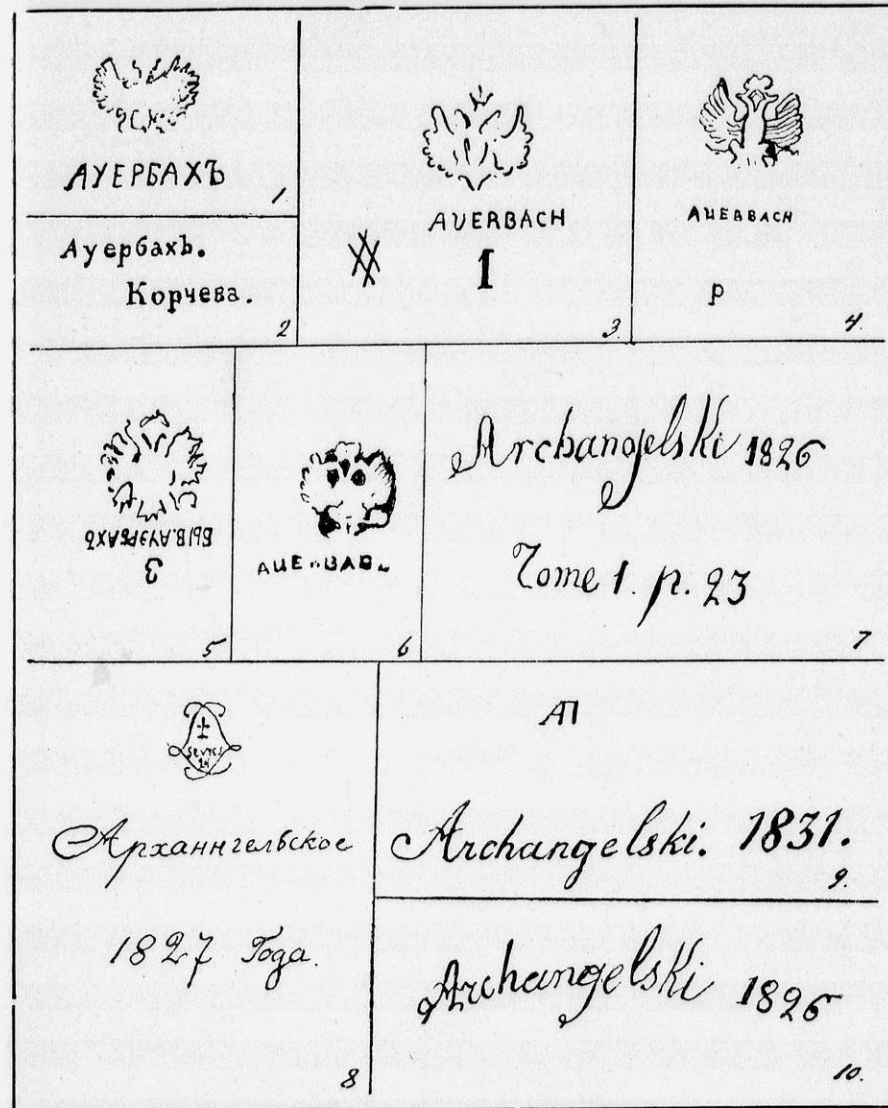 АУЕРБАХЪ
1
Ауербахъ.
Корчева.
2
AUERBACH
1
3
AUERBACH
P
4
БЫВ. АУЭРБАХЪ
3
5
6
Archangelski 1826
Tome 1. p. 23
7
Sevres
Арханнгельское
1827 Года.
8
АП
Archangelski. 1831.
9.
Archangelski 1826
10.